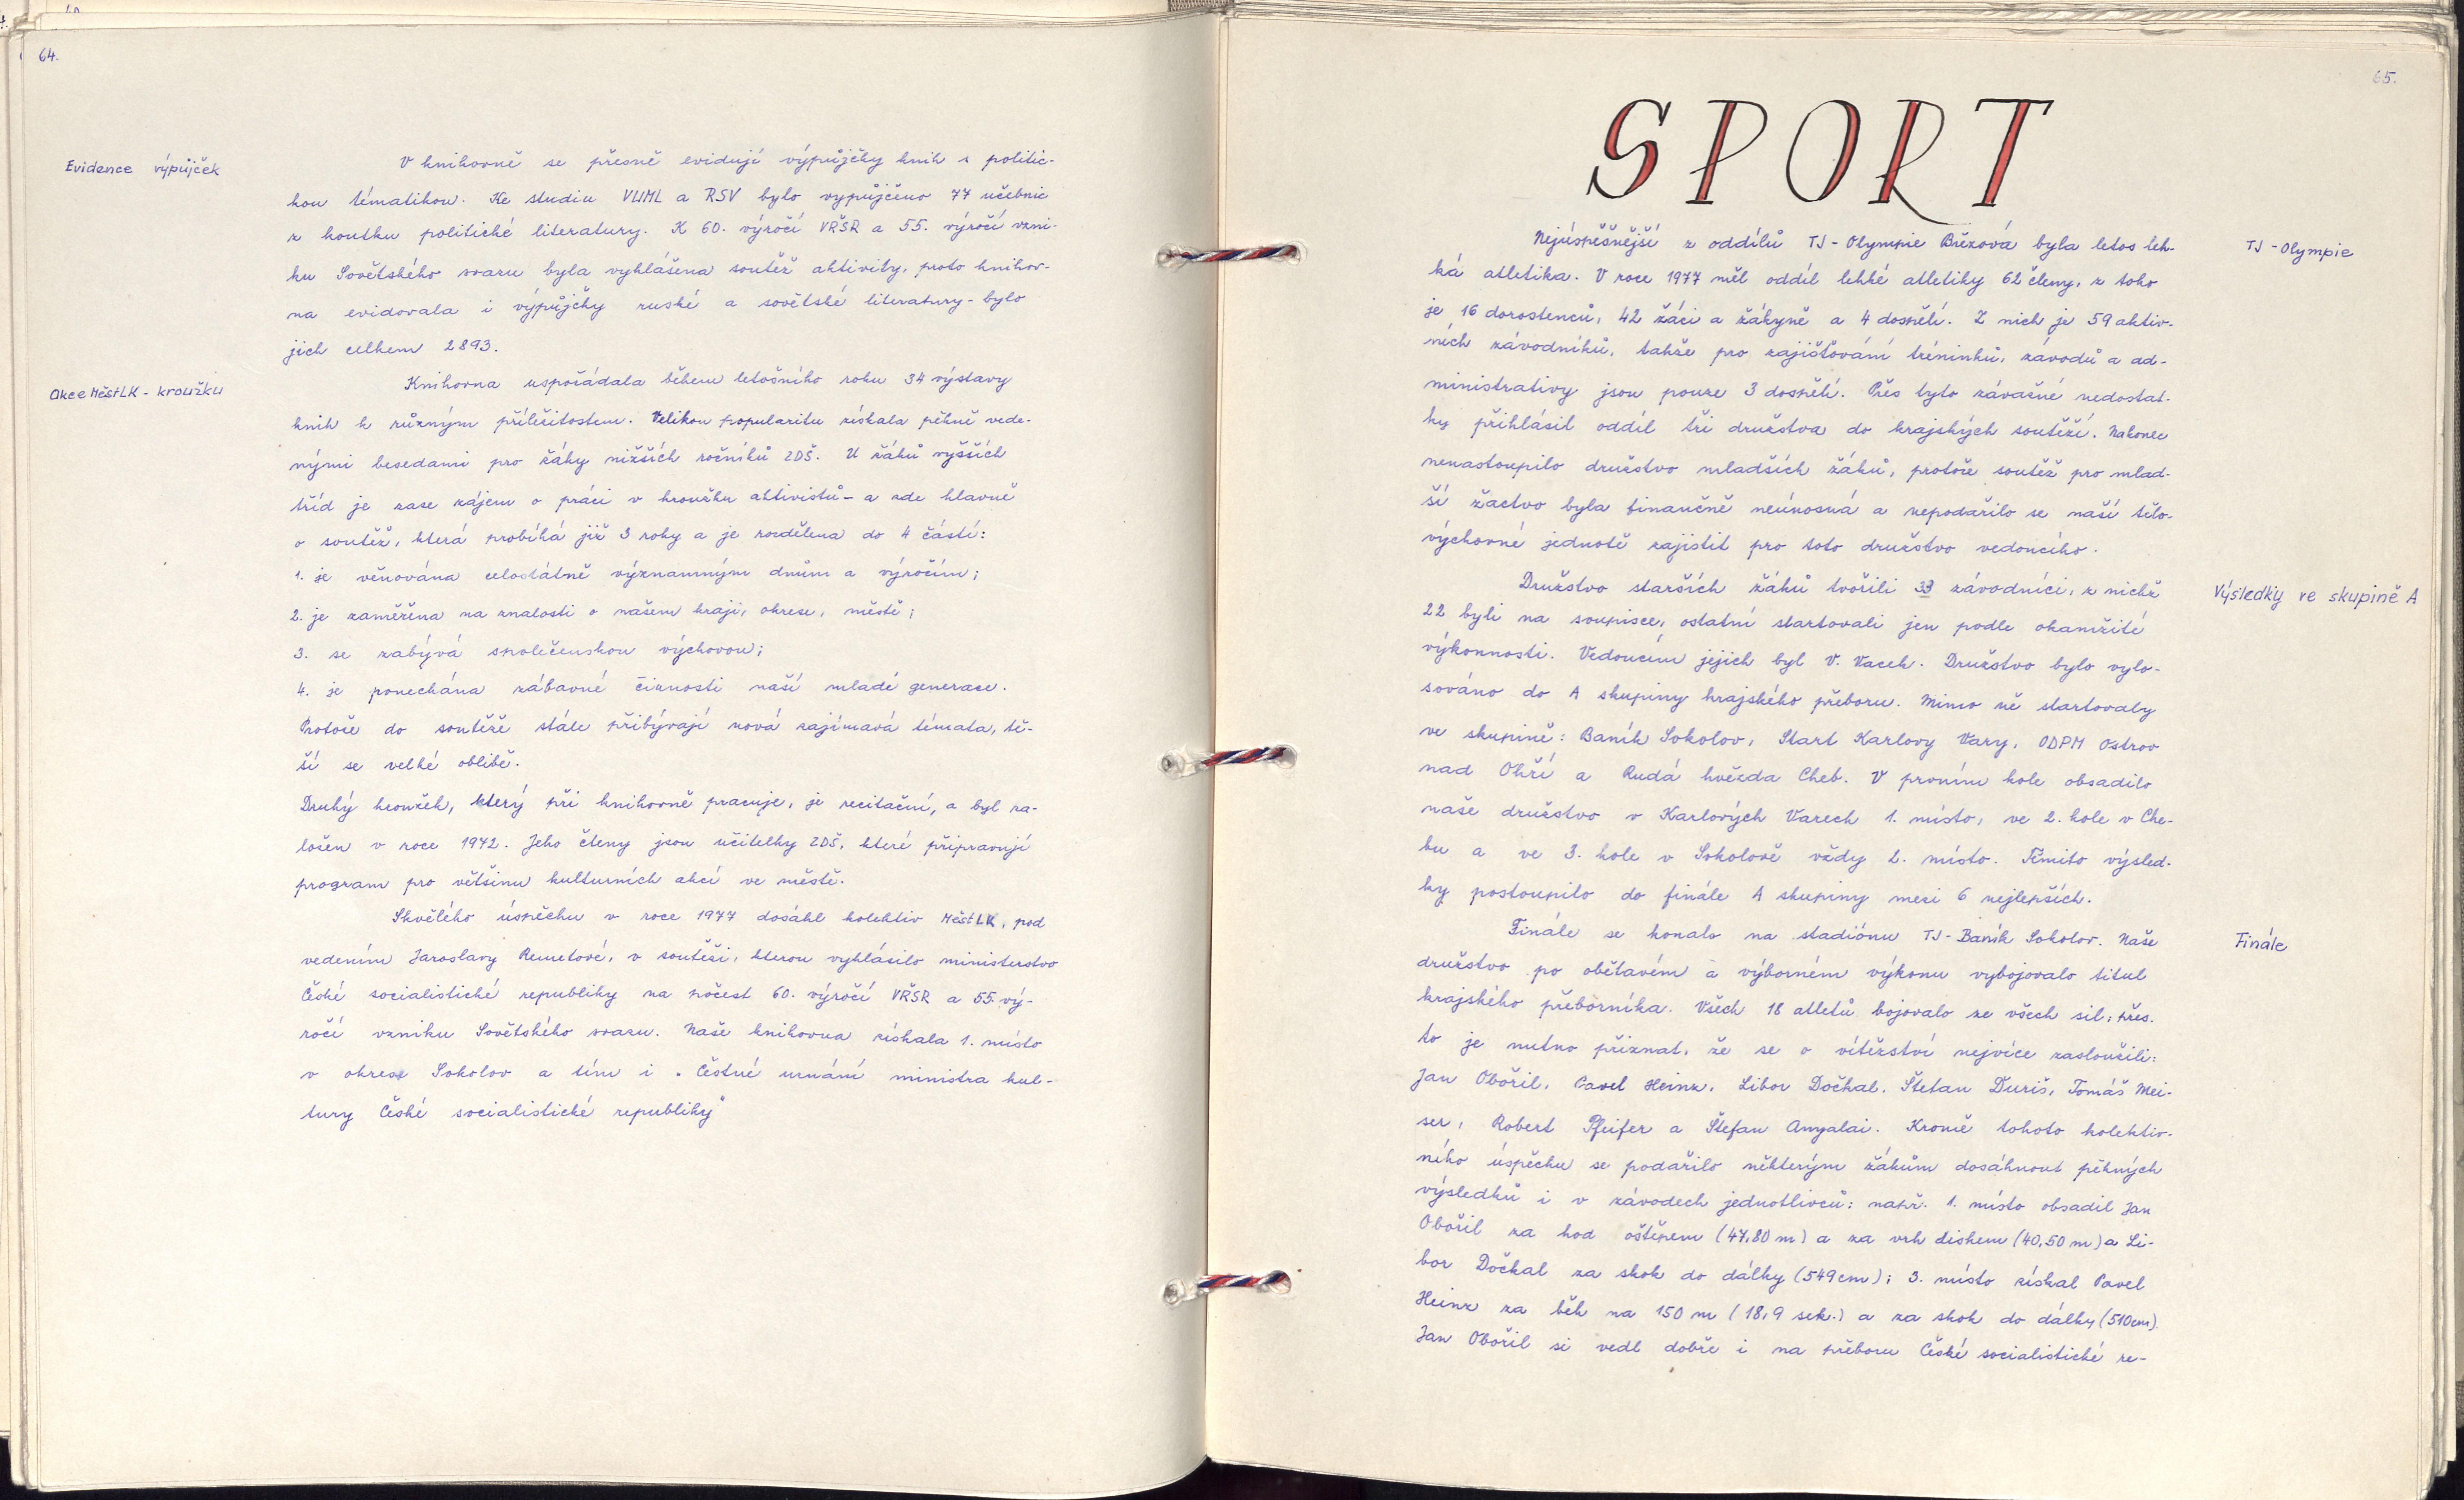 64.
Evidence výpůjček
V knihovně se přesně evidují výpůjčky knih s politic-
kou tématikou. Ke studiu VUML a RSV bylo vypůjčeno 77 učebnic
z koutku politické literatury. K 60. výročí VŘSR a 55. výročí vzni-
ku Sovětského svazu byla vyhlášena soutěž aktivity, proto knihov-
na evidovala i výpůjčky ruské a sovětské literatury - bylo
jich celkem 2893.
Akce MěstLK - kroužku
Knihovna uspořádala během letošního roku 34 výstavy
knih k různým příležitostem. Velikou popularitu získala pěkně vede-
nými besedami pro žáky nižších ročníků ZDŠ. U žáků vyšších
tříd je zase zájem o práci v kroužku aktivistů - a zde hlavně
o soutěž, která probíhá již 3 roky a je rozdělena do 4 částí:
1. je věnována celostátně významným dnům a výročím;
2. je zaměřena na znalosti o našem kraji, okrese, městě;
3. se zabývá společenskou výchovou;
4. je ponechána zábavné činnosti naší mladé generace.
Protože do soutěže stále přibývají nová zajímavá témata, tě-
ší se velké oblibě.
Druhý kroužek, který při knihovně pracuje, je recitační, a byl za-
ložen v roce 1972. Jeho členy jsou učitelky ZDŠ, které připravují
program pro většinu kulturních akcí ve městě.
Skvělého úspěchu v roce 1977 dosáhl kolektiv MěstLK, pod
vedením Jaroslavy Remetové, v soutěži, kterou vyhlásilo ministerstvo
České socialistické republiky na počest 60. výročí VŘSR a 55. vý-
ročí vzniku Sovětského svazu. Naše knihovna získala 1. místo
v okrese Sokolov a tím i „Čestné uznání ministra kul-
tury České socialistické republiky"
65.
SPORT
Nejúspěšnější z oddílů TJ - Olympie Březová byla letos leh-
TJ - Olympie
ká atletika. V roce 1977 měl oddíl lehké atletiky 62 členy, z toho
je 16 dorostenců, 42 žáci a žákyně a 4 dospělí. Z nich je 59 aktiv-
ních závodníků, takže pro zajišťování tréninků, závodů a ad-
ministrativy jsou pouze 3 dospělí. Přes tyto závažné nedostat-
ky přihlásil oddíl tři družstva do krajských soutěží. Nakonec
nenastoupilo družstvo mladších žáků, protože soutěž pro mlad-
ší žactvo byla finančně neúnosná a nepodařilo se naší tělo-
výchovné jednotě zajistit pro toto družstvo vedoucího.
Družstvo starších žáků tvořili 33 závodníci, z nichž
Výsledky ve skupině A
22 byli na soupisce, ostatní startovali jen podle okamžité
výkonnosti. Vedoucím jejich byl V. Vacek. Družstvo bylo vylo-
sováno do A skupiny krajského přeboru. Mimo ně startovaly
ve skupině: Baník Sokolov, Start Karlovy Vary, ODPM Ostrov
nad Ohří a Rudá hvězda Cheb. V prvním kole obsadilo
naše družstvo v Karlových Varech 1. místo, ve 2. kole v Che-
bu a ve 3. kole v Sokolově vždy 2. místo. Těmito výsled-
ky postoupilo do finále A skupiny mezi 6 nejlepších.
Finále se konalo na stadiónu TJ - Baník Sokolov. Naše
Finále
družstvo po obětavém a výborném výkonu vybojovalo titul
krajského přeborníka. Všech 18 atletů bojovalo ze všech sil, přes-
to je nutno přiznat, že se o vítězství nejvíce zasloužili:
Jan Obořil, Pavel Heinz, Libor Dočkal, Štefan Ďuriš, Tomáš Mei-
ser, Robert Pfeifer a Štefan Angalai. Kromě tohoto kolektiv-
ního úspěchu se podařilo některým žákům dosáhnout pěkných
výsledků i v závodech jednotlivců: např. 1. místo obsadil Jan
Obořil za hod oštěpem (47,80 m) a za vrh diskem (40,50 m) a Li-
bor Dočkal za skok do dálky (549 cm); 3. místo získal Pavel
Heinz za běh na 150 m (18,9 sek.) a za skok do dálky (510 cm).
Jan Obořil si vedl dobře i na přeboru České socialistické re-